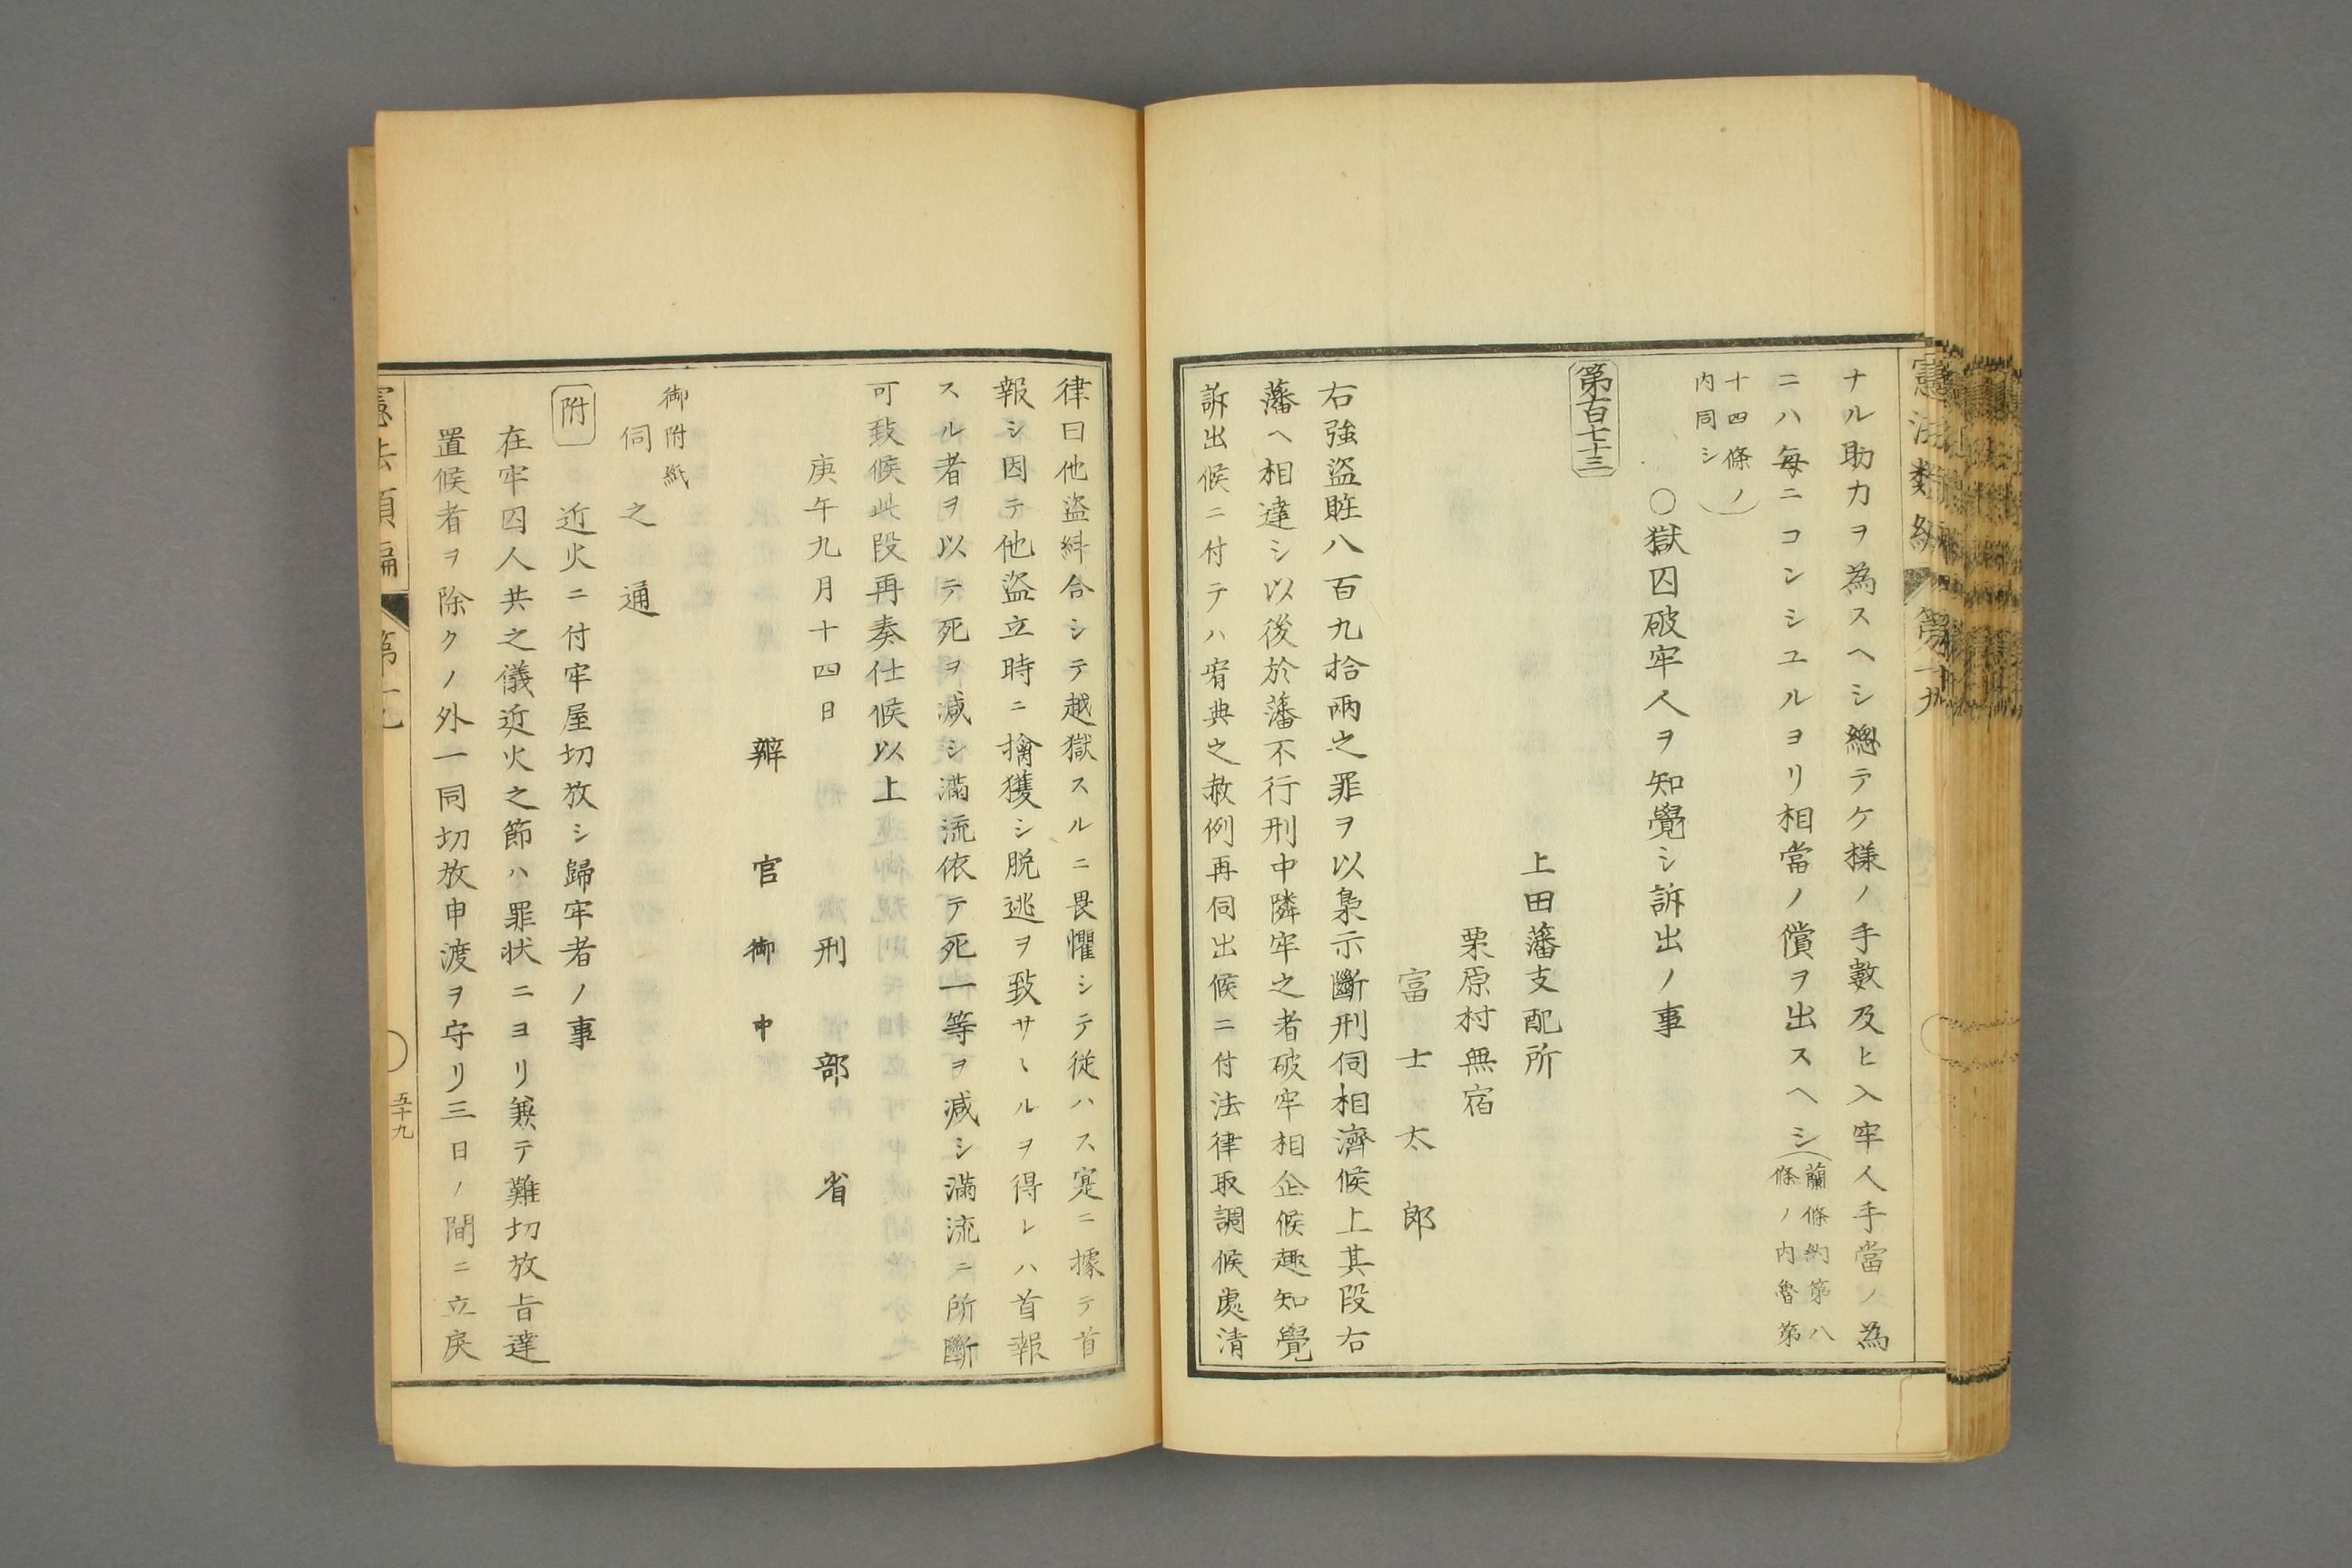 憲法類編 第十九
ナル助力ヲ為スヘシ總テケ様ノ手數及ヒ入牢人手當ノ為
ニハ毎ニコンシユルヨリ相當ノ償ヲ出スヘシ(蘭條約第八
條ノ内魯第
十四條ノ
内同シ)
○獄囚破牢人ヲ知覺シ訴出ノ事
第百七十三
上田藩支配所
栗原村無宿
富士太郎
右強盗賍八百九拾兩之罪ヲ以梟示斷刑伺相濟候上其段右
藩ヘ相達シ以後於藩不行刑中隣牢之者破牢相企候趣知覺
訴出候ニ付テハ宥典之赦例再伺出候ニ付法律取調候處清
律曰他盗糾合シテ越獄スルニ畏懼シテ従ハス寔ニ據テ首
報シ因テ他盗立時ニ擒獲シ脱逃ヲ致サヽルヲ得レハ首報
スル者ヲ以テ死ヲ減シ滿流依テ死一等ヲ減シ滿流ニ所斷
可致候此段再奏仕候以上
庚午九月十四日
刑部省
辨官御中
御附紙
伺之通
附
近火ニ付牢屋切放シ歸牢者ノ事
在牢囚人共之儀近火之節ハ罪状ニヨリ兼テ難切放旨達
置候者ヲ除クノ外一同切放申渡ヲ守リ三日ノ間ニ立戻
憲法類編 第十九
五十九